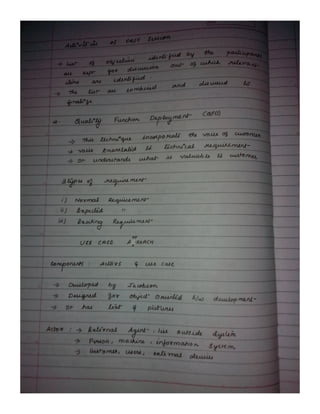 Activities of FAST Session
→ list of objectives identified by the participants
are kept for discussion out of which relevant
items are identified
→ The list are combined and discussed to
finalize
Quality Function Deployment (QFD)
→ This technique incorporate the voice of customer
→ voice translated to technical requirement
→ It understands what is valuable to customer
3 types of requirement
i) Normal Requirement
ii) Expected "
iii) Exciting Requirement
USE CASE APPROACH
Components : Actors & use case
→ Developed by Jacobson
→ Designed for object Oriented s/w development
→ It has list of pictures
Actor : → External Agent, lies outside system
→ Person, machine, information system
→ customer, users, external devices